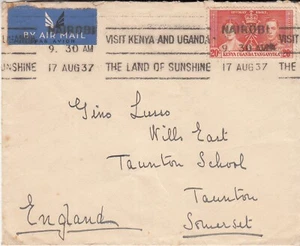 BY AIR MAIL
NAIROBI
9. 30 AM
17 AUG 37
VISIT KENYA AND UGANDA
THE LAND OF SUNSHINE
NAIROBI
9. 30 AM
17 AUG 37
KENYA UGANDA TANGANYIKA
20
Gino Lusso
Wills East
Taunton School
Taunton
Somerset
England